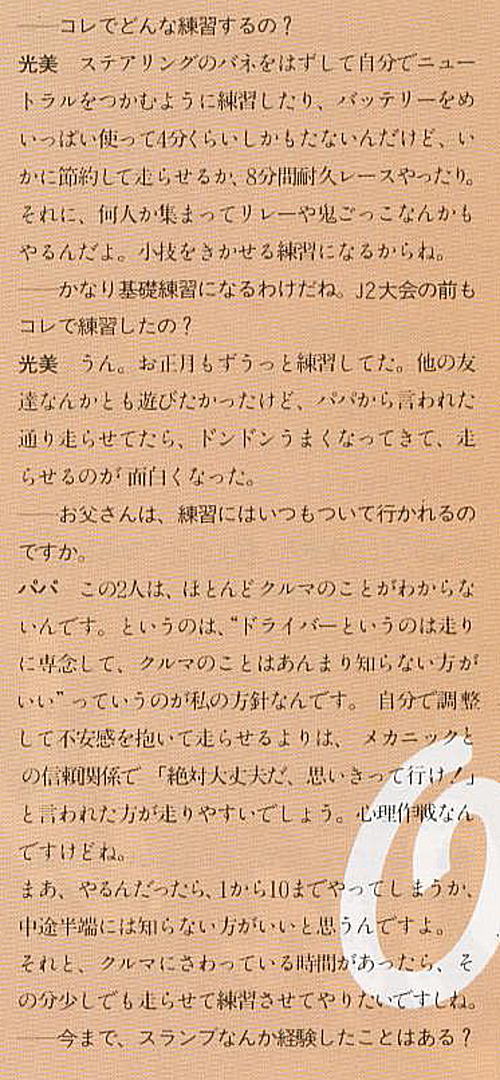 ――コレでどんな練習するの？
光美　ステアリングのバネをはずして自分でニュー
トラルをつかむように練習したり、バッテリーをめ
いっぱい使って4分くらいしかもたないんだけど、い
かに節約して走らせるか、8分間耐久レースやったり。
それに、何人か集まってリレーや鬼ごっこなんかも
やるんだよ。小技をきかせる練習になるからね。
――かなり基礎練習になるわけだね。J2大会の前も
コレで練習したの？
光美　うん。お正月もずうっと練習してた。他の友
達なんかとも遊びたかったけど、パパから言われた
通り走らせてたら、ドンドンうまくなってきて、走
らせるのが面白くなった。
――お父さんは、練習にはいつもついて行かれるの
ですか。
パパ　この2人は、ほとんどクルマのことがわからな
いんです。というのは、“ドライバーというのは走り
に専念して、クルマのことはあんまり知らない方が
いい”っていうのが私の方針なんです。自分で調整
して不安感を抱いて走らせるよりは、メカニックと
の信頼関係で「絶対大丈夫だ、思いきって行け！」
と言われた方が走りやすいでしょう。心理作戦なん
ですけどね。
まあ、やるんだったら、1から10までやってしまうか、
中途半端には知らない方がいいと思うんですよ。
それと、クルマにさわっている時間があったら、そ
の分少しでも走らせて練習させてやりたいですしね。
――今まで、スランプなんか経験したことはある？